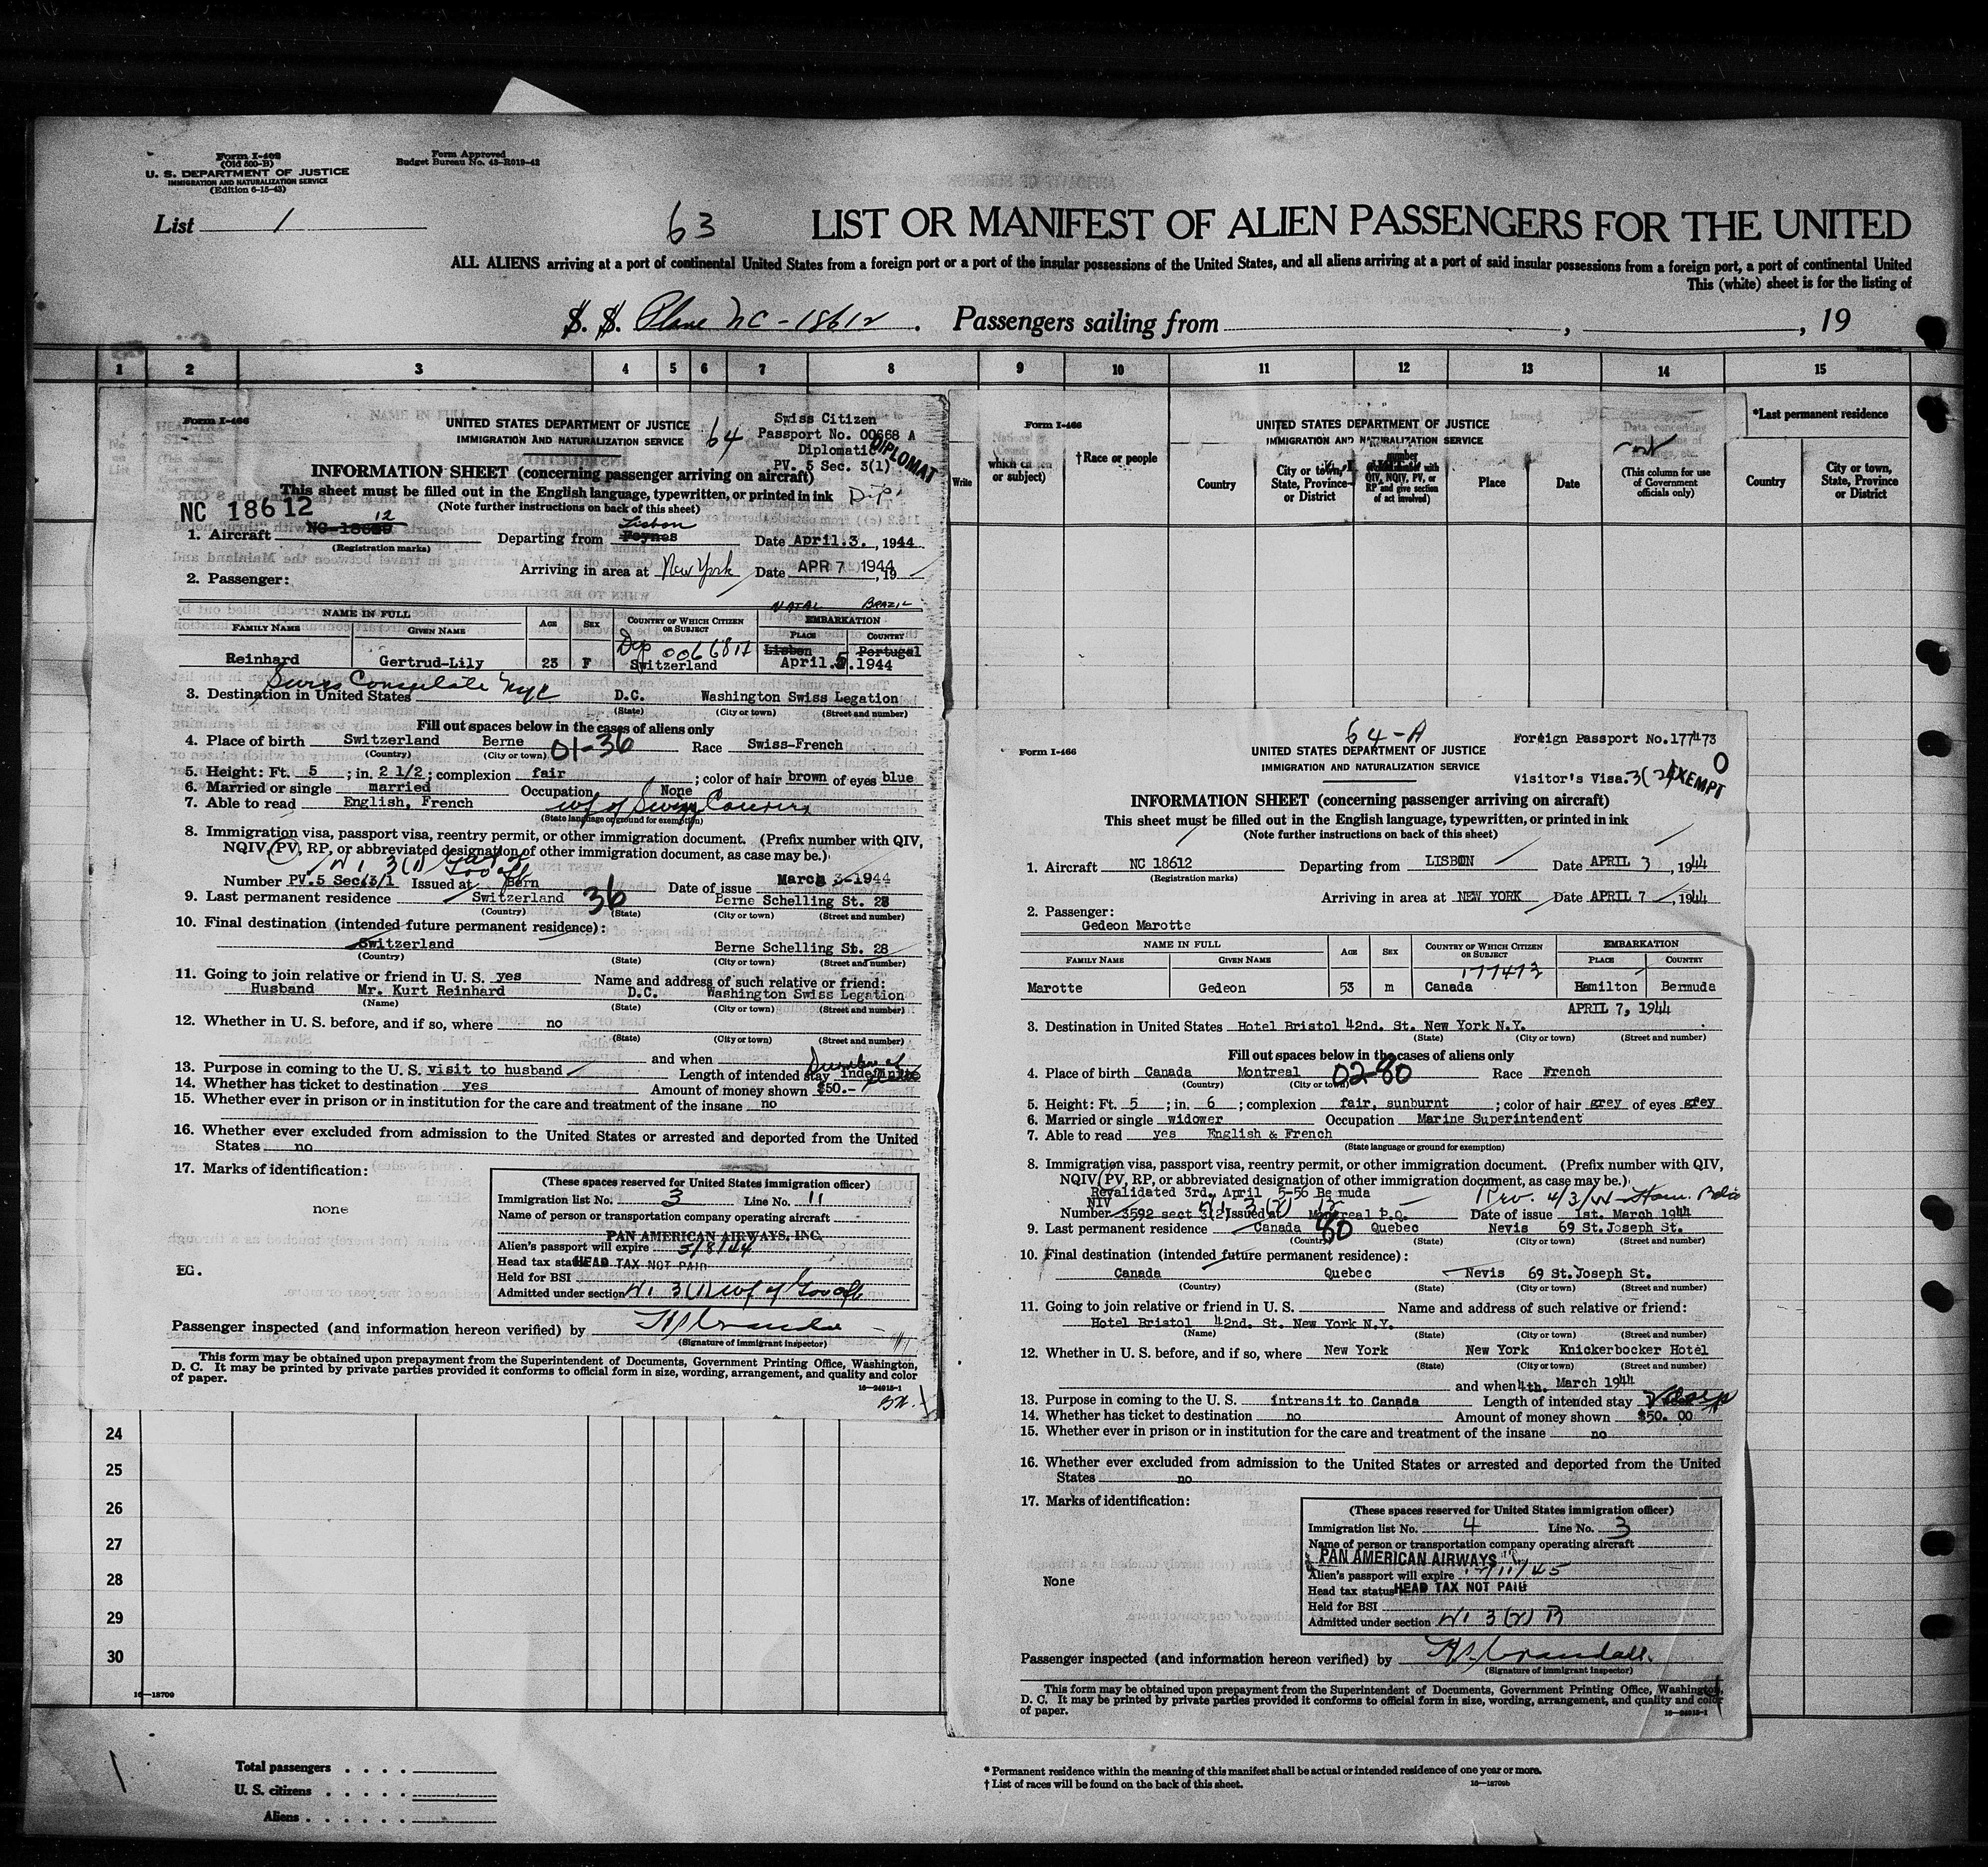 Form I-402
(Old 500-B)
U. S. DEPARTMENT OF JUSTICE
IMMIGRATION AND NATURALIZATION SERVICE
(Edition 6-15-43)
Form Approved
Budget Bureau No. 43-R019-42
List 1
63
LIST OR MANIFEST OF ALIEN PASSENGERS FOR THE UNITED
ALL ALIENS arriving at a port of continental United States from a foreign port or a port of the insular possessions of the United States, and all aliens arriving at a port of said insular possessions from a foreign port, a port of continental United
This (white) sheet is for the listing of
S. S. Plane NC-18612. Passengers sailing from , , 19
1 2 3 4 5 6 7 8 9 10 11 12 13 14 15
Form I-466
UNITED STATES DEPARTMENT OF JUSTICE
IMMIGRATION AND NATURALIZATION SERVICE
64
Swiss Citizen
Passport No. 00668 A
Diplomatic
PV. 5 Sec. 3(1)
DIPLOMAT
INFORMATION SHEET (concerning passenger arriving on aircraft)
This sheet must be filled out in the English language, typewritten, or printed in ink
(Note further instructions on back of this sheet)
NC 18612
12
Lisbon
1. Aircraft Departing from Foynes Date April.3. , 1944
(Registration marks)
Arriving in area at New York Date APR 7 1944, 19
2. Passenger:
NATAL BRAZIL
NAME IN FULL
FAMILY NAME
GIVEN NAME
AGE
SEX
COUNTRY OF WHICH CITIZEN OR SUBJECT
EMBARKATION
PLACE
COUNTRY
Dip
Lisbon Portugal
Reinhard Gertrud-Lily 23 F Switzerland April.5.1944
Swiss Consulate NYC
3. Destination in United States D.C. Washington Swiss Legation
(State) (City or town) (Street and number)
Fill out spaces below in the cases of aliens only
4. Place of birth Switzerland Berne 01-36 Race Swiss-French
(Country) (City or town)
5. Height: Ft. 5 ; in. 2 1/2 ; complexion fair ; color of hair brown of eyes blue
6. Married or single married Occupation None
7. Able to read English, French wf of Swiss Courier
(State language or ground for exemption)
8. Immigration visa, passport visa, reentry permit, or other immigration document. (Prefix number with QIV,
NQIV, PV, RP, or abbreviated designation of other immigration document, as case may be.)
Number PV.5 Sec.3/1 Issued at Bern Date of issue March 3-1944
9. Last permanent residence Switzerland 36 Berne Schelling St. 28
(Country) (State) (City or town) (Street and number)
10. Final destination (intended future permanent residence):
Switzerland Berne Schelling St. 28
(Country) (State) (City or town) (Street and number)
11. Going to join relative or friend in U. S. yes Name and address of such relative or friend:
Husband Mr. Kurt Reinhard D.C. Washington Swiss Legation
(Name) (State) (City or town) (Street and number)
12. Whether in U. S. before, and if so, where no
(State) (City or town) (Street and number)
and when
13. Purpose in coming to the U. S. visit to husband Length of intended stay Indefinite
14. Whether has ticket to destination yes Amount of money shown $50.-
15. Whether ever in prison or in institution for the care and treatment of the insane no
16. Whether ever excluded from admission to the United States or arrested and deported from the United
States no
17. Marks of identification:
none
EG.
(These spaces reserved for United States immigration officer)
Immigration list No. 3 Line No. 11
Name of person or transportation company operating aircraft
PAN AMERICAN AIRWAYS, INC.
Alien's passport will expire 5/8/44
Head tax status HEAD TAX NOT PAID
Held for BSI
Admitted under section NI 3(1) wf of Gov off
Passenger inspected (and information hereon verified) by
(Signature of immigrant inspector)
This form may be obtained upon prepayment from the Superintendent of Documents, Government Printing Office, Washington,
D. C. It may be printed by private parties provided it conforms to official form in size, wording, arrangement, and quality and color
of paper.
16-24915-1
24
25
26
27
28
29
30
16-18709
Total passengers
U. S. citizens
Aliens
Form I-466
UNITED STATES DEPARTMENT OF JUSTICE
IMMIGRATION AND NATURALIZATION SERVICE
which citizen
or subject)
†Race or people
Write
Country
City or town,
State, Province
or District
number
QIV, NQIV, PV, or
RP and give section
of act involved)
Place
Date
(This column for use
of Government
officials only)
*Last permanent residence
Country
City or town,
State, Province
or District
64-A
Form I-466
UNITED STATES DEPARTMENT OF JUSTICE
IMMIGRATION AND NATURALIZATION SERVICE
Foreign Passport No.177473
0
Visitor's Visa.3(2)
EXEMPT
INFORMATION SHEET (concerning passenger arriving on aircraft)
This sheet must be filled out in the English language, typewritten, or printed in ink
(Note further instructions on back of this sheet)
1. Aircraft NC 18612 Departing from LISBON Date APRIL 3 , 1944
(Registration marks)
Arriving in area at NEW YORK Date APRIL 7 , 1944
2. Passenger:
Gedeon Marotte
NAME IN FULL
FAMILY NAME
GIVEN NAME
AGE
SEX
COUNTRY OF WHICH CITIZEN OR SUBJECT
EMBARKATION
PLACE
COUNTRY
177473
Marotte Gedeon 53 m Canada Hamilton Bermuda
APRIL 7, 1944
3. Destination in United States Hotel Bristol 42nd. St. New York N.Y.
(State) (City or town) (Street and number)
Fill out spaces below in the cases of aliens only
4. Place of birth Canada Montreal 02-80 Race French
(Country) (City or town)
5. Height: Ft. 5 ; in. 6 ; complexion fair, sunburnt ; color of hair grey of eyes grey
6. Married or single widower Occupation Marine Superintendent
7. Able to read yes English & French
(State language or ground for exemption)
8. Immigration visa, passport visa, reentry permit, or other immigration document. (Prefix number with QIV,
NQIV, PV, RP, or abbreviated designation of other immigration document, as case may be.)
Revalidated 3rd. April 5-56 Bermuda Rev. 4/3/44
NIV
Number 3592 sect 3(2) Issued at Montreal P.Q. Date of issue 1st. March 1944
9. Last permanent residence Canada 80 Quebec Nevis 69 St.Joseph St.
(Country) (State) (City or town) (Street and number)
10. Final destination (intended future permanent residence):
Canada Quebec Nevis 69 St.Joseph St.
(Country) (State) (City or town) (Street and number)
11. Going to join relative or friend in U. S. Name and address of such relative or friend:
Hotel Bristol 42nd. St. New York N.Y.
(Name) (State) (City or town) (Street and number)
12. Whether in U. S. before, and if so, where New York New York Knickerbocker Hotel
(State) (City or town) (Street and number)
and when 4th. March 1944
13. Purpose in coming to the U. S. intransit to Canada Length of intended stay
14. Whether has ticket to destination no Amount of money shown $50. 00
15. Whether ever in prison or in institution for the care and treatment of the insane no
16. Whether ever excluded from admission to the United States or arrested and deported from the United
States no
17. Marks of identification:
None
(These spaces reserved for United States immigration officer)
Immigration list No. 4 Line No. 3
Name of person or transportation company operating aircraft
PAN AMERICAN AIRWAYS
Alien's passport will expire
Head tax status HEAD TAX NOT PAID
Held for BSI
Admitted under section NI 3(2) B
Passenger inspected (and information hereon verified) by
(Signature of immigrant inspector)
This form may be obtained upon prepayment from the Superintendent of Documents, Government Printing Office, Washington,
D. C. It may be printed by private parties provided it conforms to official form in size, wording, arrangement, and quality and color
of paper.
16-24915-1
* Permanent residence within the meaning of this manifest shall be actual or intended residence of one year or more.
† List of races will be found on the back of this sheet.
16-18709b